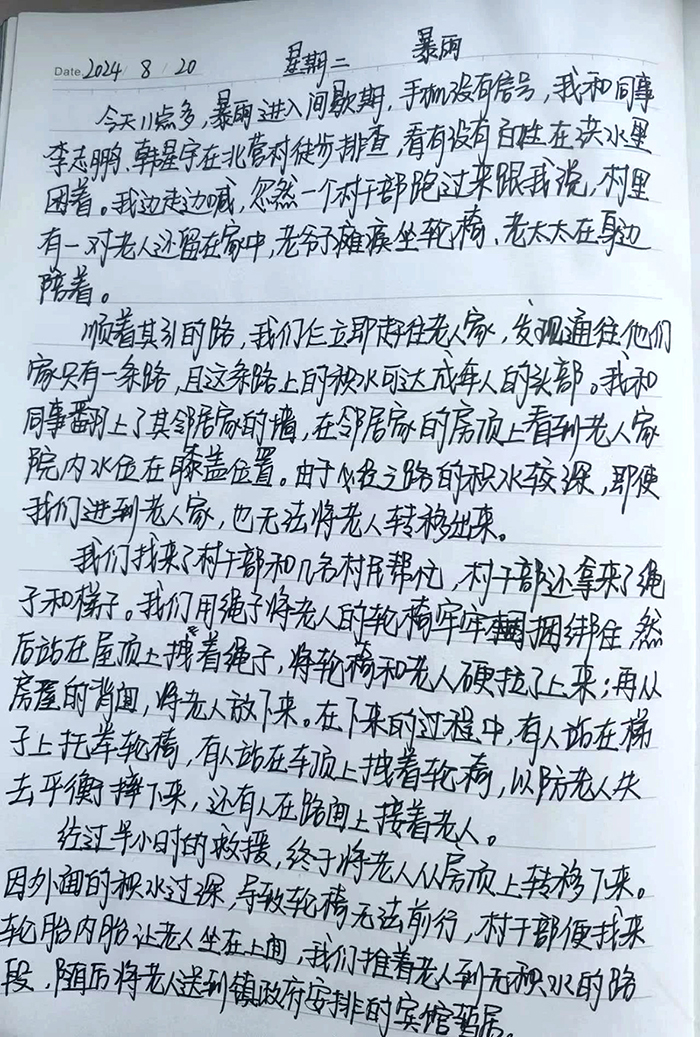 Date 2024 / 8 / 20 星期二 暴雨
今天11点多,暴雨进入间歇期,手机没有信号,我和同事
李志鹏、韩星宇在北营村徒步排查,看有没有百姓在洪水里
困着。我边走边喊,忽然一个村干部跑过来跟我说,村里
有一对老人还留在家中,老爷子瘫痪坐轮椅、老太太在身边
陪着。
顺着其引的路,我们仨立即赶往老人家,发现通往他们
家只有一条路,且这条路上的积水可达成年人的头部。我和
同事翻上了其邻居家的墙,在邻居家的房顶上看到老人家
院内水位在膝盖位置。由于必经之路的积水较深,即使
我们进到老人家,也无法将老人转移出来。
我们找来了村干部和几名村民帮忙,村干部还拿来了绳
子和梯子。我们用绳子将老人的轮椅牢牢捆绑住,然
后站在屋顶上拽着绳子,将轮椅和老人硬拉了上来;再从
房屋的背面,将老人放下来。在下来的过程中,有人站在梯
子上托举轮椅,有人站在车顶上拽着轮椅,以防老人失
去平衡摔下来,还有人在路面上接着老人。
经过半小时的救援,终于将老人从房顶上转移下来。
因外面的积水过深,导致轮椅无法前行,村干部便找来
轮胎内胎让老人坐在上面,我们推着老人到无积水的路
段,随后将老人送到镇政府安排的宾馆暂居。